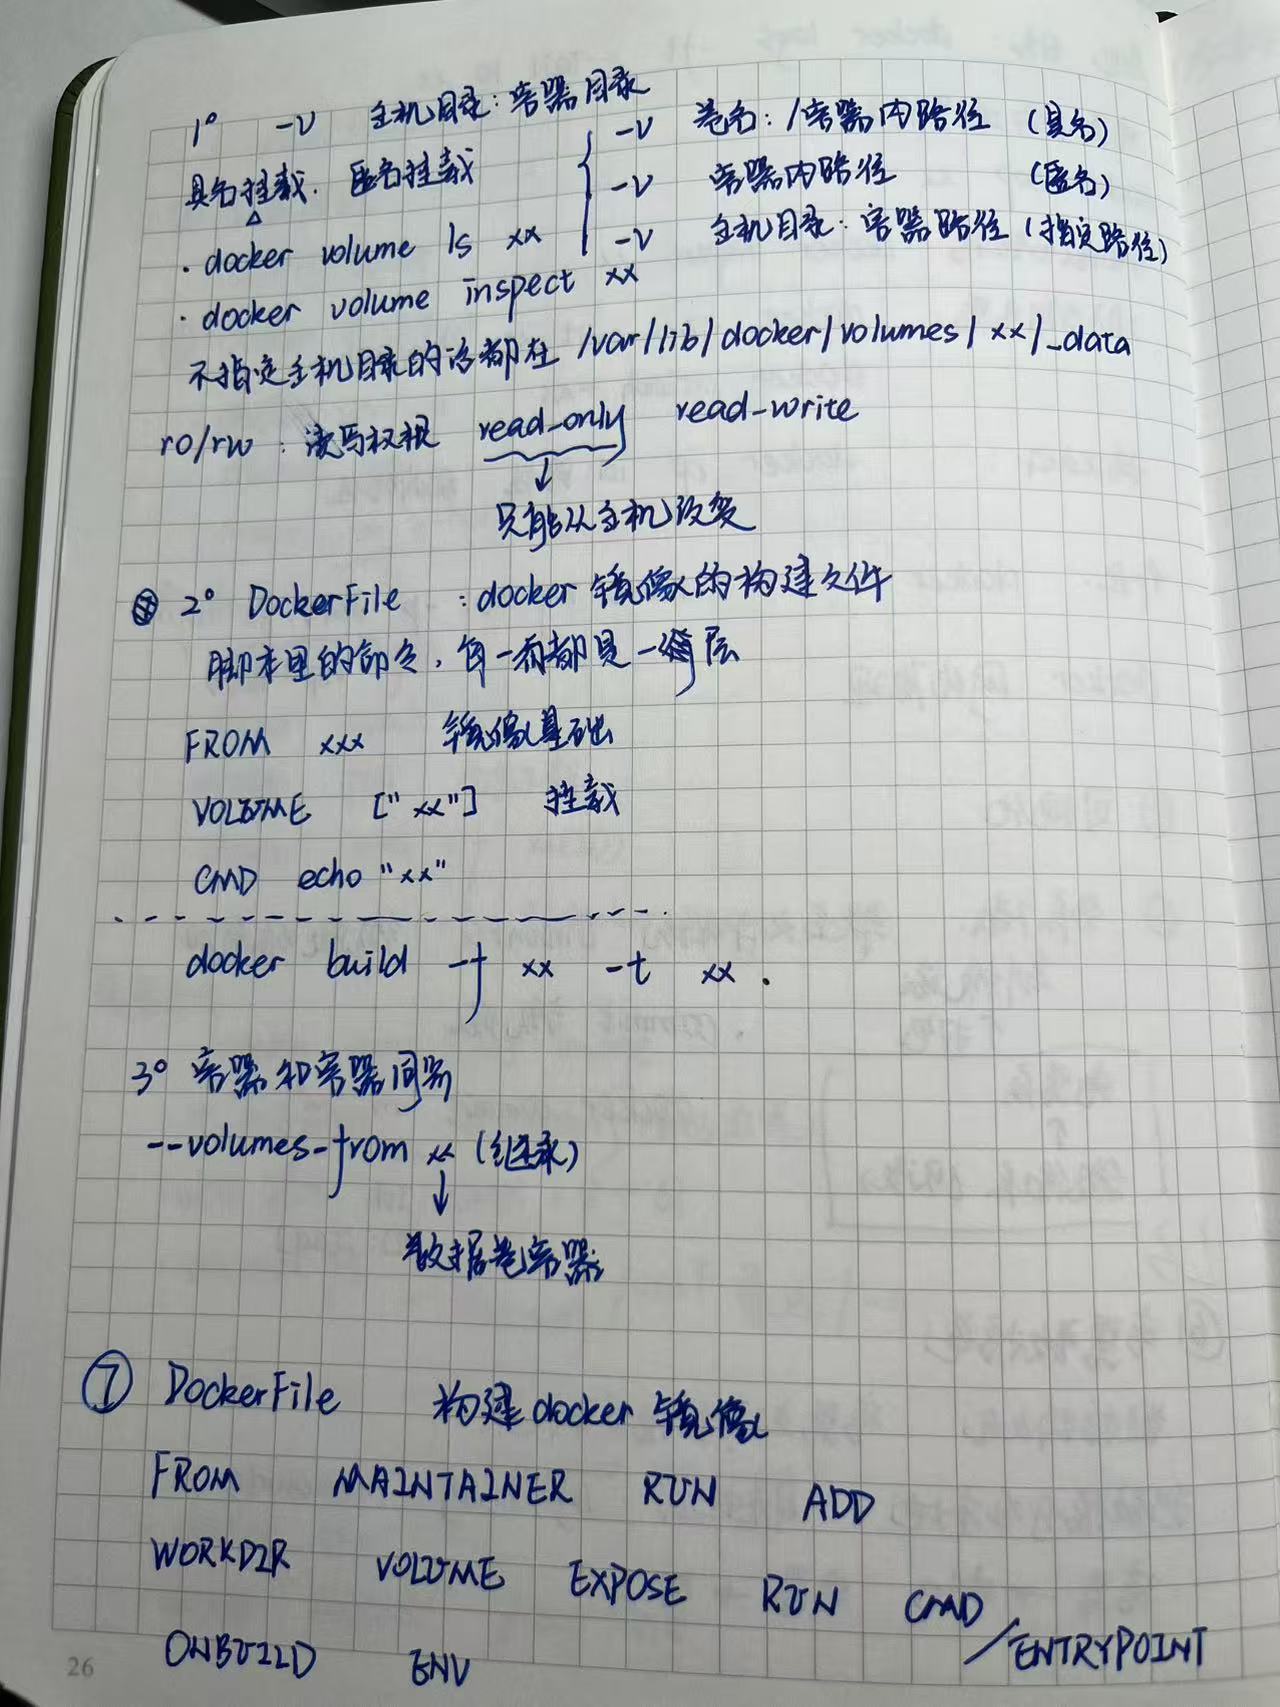 1° -v 主机目录:容器目录
具名挂载. 匿名挂载
-v 卷名:/容器内路径 (具名)
-v 容器内路径 (匿名)
-v 主机目录:容器路径 (指定路径)
· docker volume ls xx
· docker volume inspect xx
不指定主机目录的话都在 /var/lib/docker/volumes/xx/_data
ro/rw : 读写权限 read_only read-write
只能从主机改变
2° DockerFile : docker 镜像的构建文件
脚本里的命令, 每一行都是一层
FROM xxx 镜像基础
VOLUME ["xx"] 挂载
CMD echo "xx"
docker build -f xx -t xx .
3° 容器和容器间
--volumes-from xx (继承)
数据卷容器
⑦ DockerFile 构建docker镜像
FROM MAINTAINER RUN ADD
WORKDIR VOLUME EXPOSE RUN CMD
/ENTRYPOINT
ONBUILD ENV
26